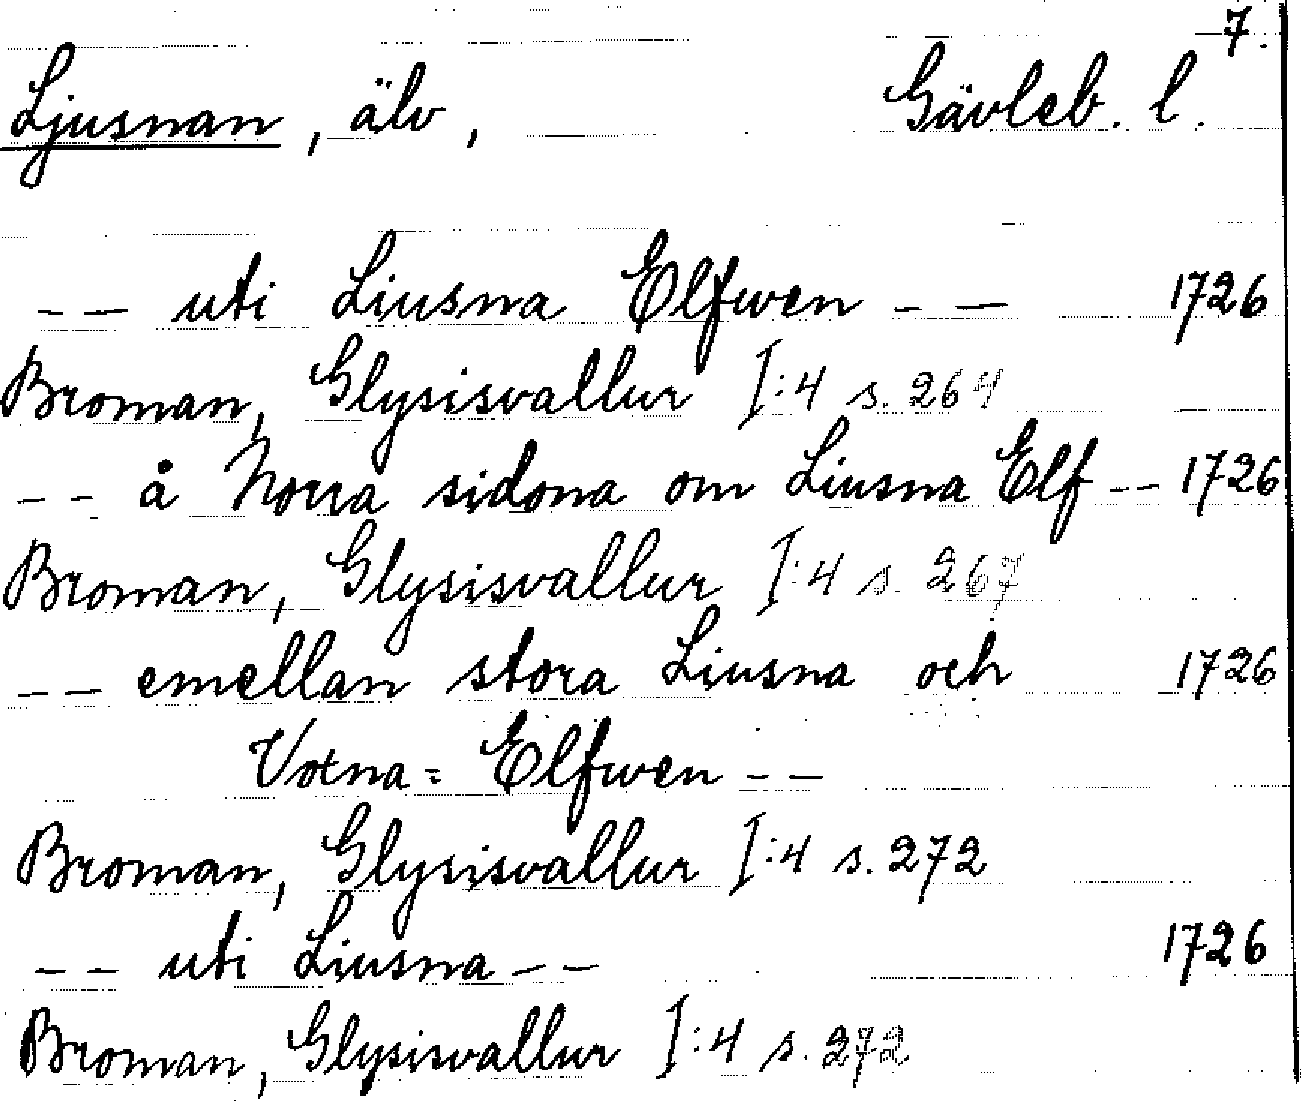 7.
Ljusnan, älv, Gävleb. l.
-- uti Liusna Elfwen -- 1726
Broman, Glysisvallur I:4 s. 264
-- å Norra sidona om Liusna Elf -- 1726
Broman, Glysisvallur I:4 s. 267
-- emellan stora Liusna och 1726
Votna= Elfwen --
Broman, Glysisvallur I:4 s. 272
-- uti Liusna -- 1726
Broman, Glysisvallur I:4 s. 272